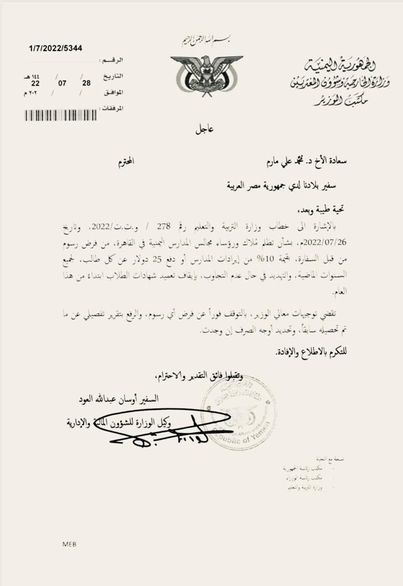 بسم الله الرحمن الرحيم
الجمهورية اليمنية
وزارة الخارجية وشؤون المغتربين
مكتب الوزير
1/7/2022/5344
الرقـم :
التاريخ / / ١٤٤ هـ
28 07 22
الموافق / / ٢٠٢ م
المرفقات :
عاجل
سعادة الأخ د. محمد علي مارم المحترم
سفير بلادنا لدى جمهورية مصر العربية
تحية طيبة وبعد،
بالإشارة الى خطاب وزارة التربية والتعليم رقم 278 / و.ت.ت/2022، وتاريخ
2022/07/26م، بشأن تظلم مُلاك ورؤساء مجالس المدارس اليمنية في القاهرة، من فرض رسوم
من قبل السفارة، بقيمة 10% من إيرادات المدارس أو دفع 25 دولار عن كل طالب، لجميع
السنوات الماضية، والتهديد في حال عدم التجاوب، بإيقاف تعميد شهادات الطلاب ابتداءً من هذا
العام.
تقضي توجيهات معالي الوزير، بالتوقف فوراً عن فرض أي رسوم، والرفع بتقرير تفصيلي عن ما
تم تحصيله سابقاً، وتحديد أوجه الصرف إن وجدت.
للتكرم بالاطلاع والإفادة.
وتقبلوا فائق التقدير والاحترام،
السفير أوسان عبدالله العود
وكيل الوزارة للشؤون المالية والإدارية
Republic of Yemen
نسخة مع التحية
مكتب رئاسة الجمهورية
مكتب رئاسة الوزراء
وزارة التربية والتعليم
MEB